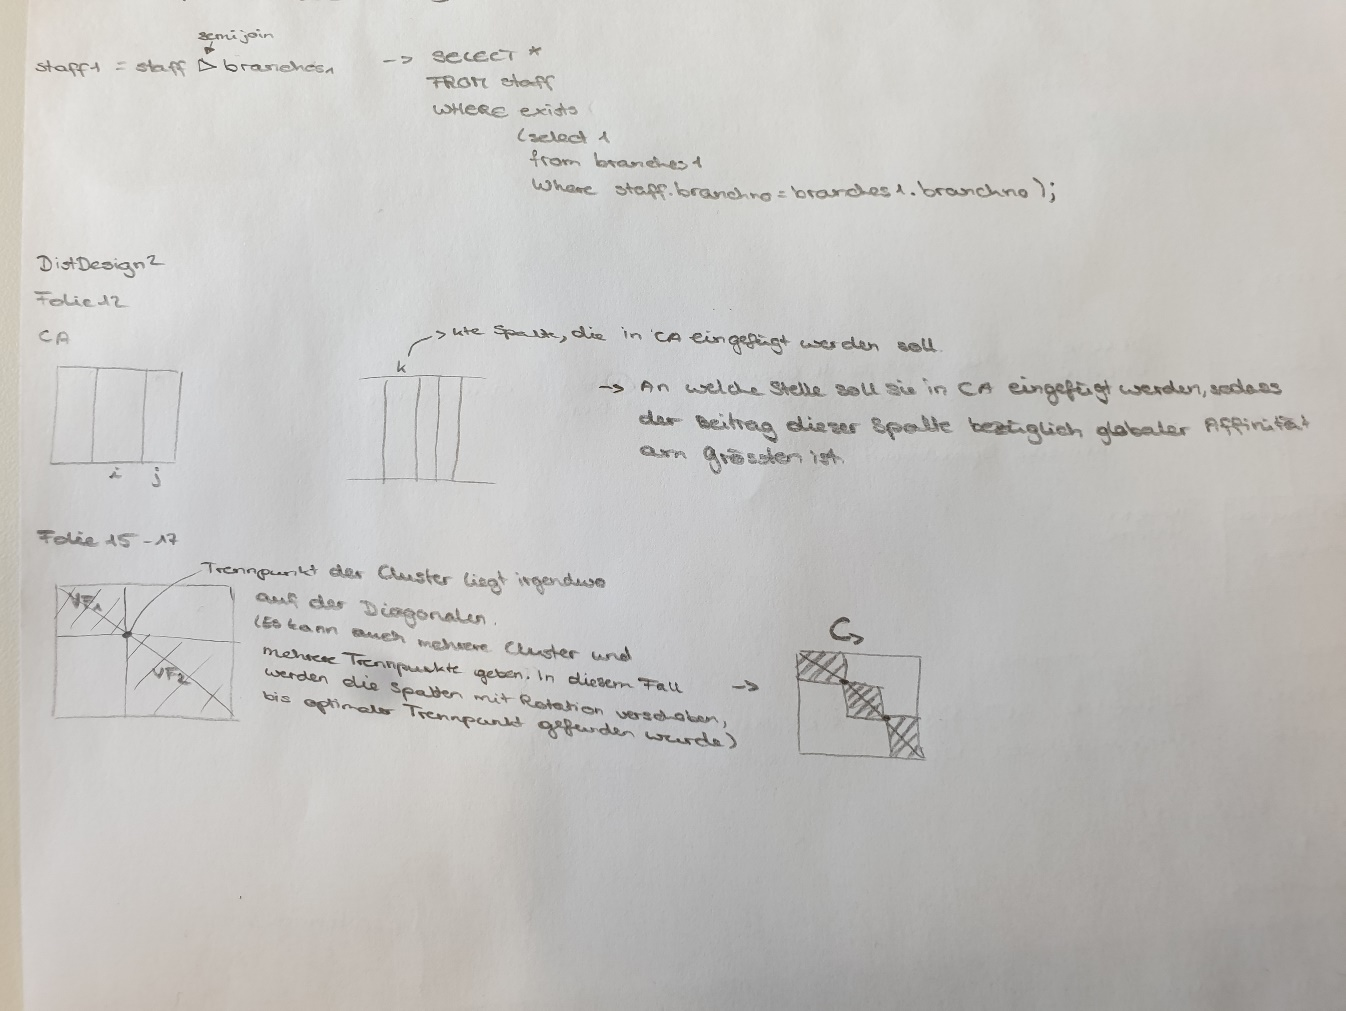 semijoin
staff1 = staff ▷ branches1 -> SELECT *
FROM staff
WHERE exists
(select 1
from branches1
Where staff.branchno = branches1.branchno);
DistDesign2
Folie 12
CA
i j
k
-> kte Spalte, die in CA eingefügt werden soll.
-> An welche Stelle soll sie in CA eingefügt werden, sodass
der Beitrag dieser Spalte bezüglich globaler Affinität
am grössten ist.
Folie 15-17
VF1
VF2
Trennpunkt der Cluster liegt irgendwo
auf der Diagonalen.
(Es kann auch mehrere Cluster und
mehrere Trennpunkte geben. In diesem Fall
werden die Spalten mit Rotation verschoben,
bis optimaler Trennpunkt gefunden wurde) ->